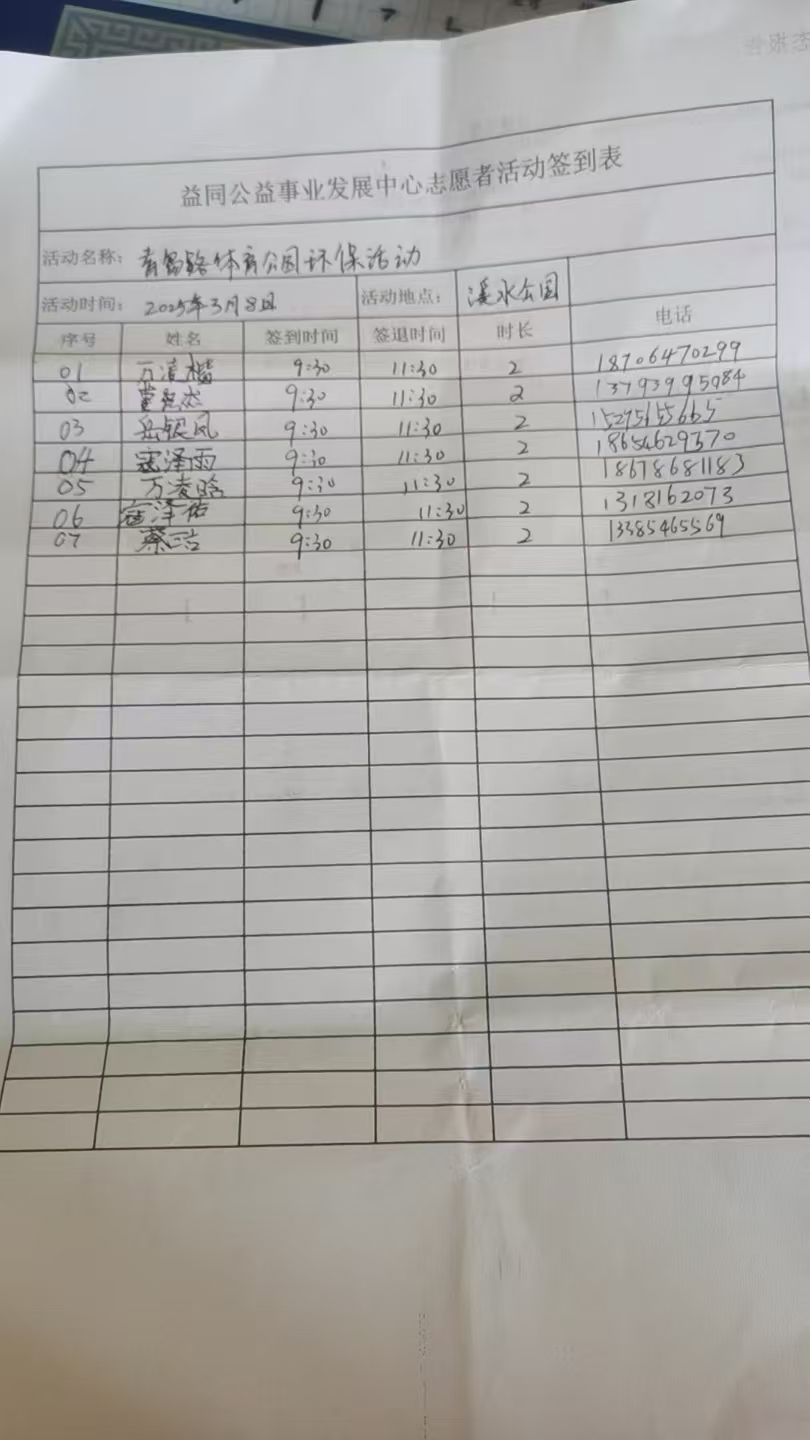 益同公益事业发展中心志愿者活动签到表
活动名称： 青岛路体育公园环保活动
活动时间： 2025年3月8日 活动地点： 溪水公园
序号 姓名 签到时间 签退时间 时长 电话
01 万凌 9:30 11:30 2 18706470299
02 9:30 11:30 2 13793995984
03 岳银凤 9:30 11:30 2 15275655665
04 寇泽雨 9:30 11:30 2 18654629370
05 万凌晗 9:30 11:30 2 18678681183
06 寇泽佑 9:30 11:30 2 1318162073
07 蔡三洁 9:30 11:30 2 13385465569